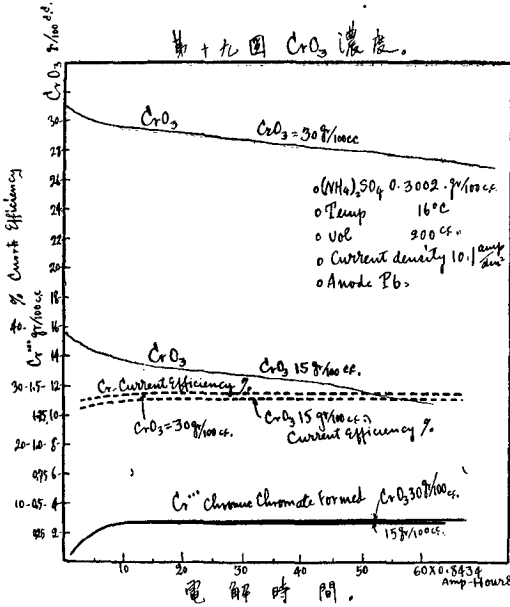 第十九圖 CrO3 濃度.
CrO3 gr/100 c.c.
% Current Efficiency
Cr''' gr/100 c.c.
30
28
26
24
22
20
40- 18
16
14
30-1.5-12
1.25 10
20-1.0-8
0.75 6
10-0.5-4
0.25 2
CrO3
CrO3=30gr/100cc
(NH4)2SO4 0.3002 gr/100 c.c.
Temp 16°C
vol 200 c.c.
Current density 10.1 amp/dm2
Anode Pb.
CrO3
CrO3 15 gr/100 c.c.
Cr-Current Efficiency %
CrO3=30gr/100 c.c.
CrO3 15 gr/100 c.c.
Current Efficiency %
Cr''' Chromic Chromate Formed
CrO3 30 gr/100 c.c.
15 gr/100 c.c.
10 20 30 40 50 60X0.8434
Amp-Hours
電解時間.